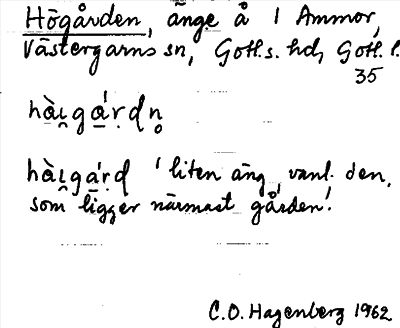 Högården, änge å 1 Ammor,
Västergarns sn, Gotl. s. hd, Gotl. l.
35
hàɪ̯ga̠´r̩dn̥
hàɪ̯ga̠´r̩d 'liten äng, vanl. den,
som ligger närmast gården'.
C.O. Hagenberg 1962